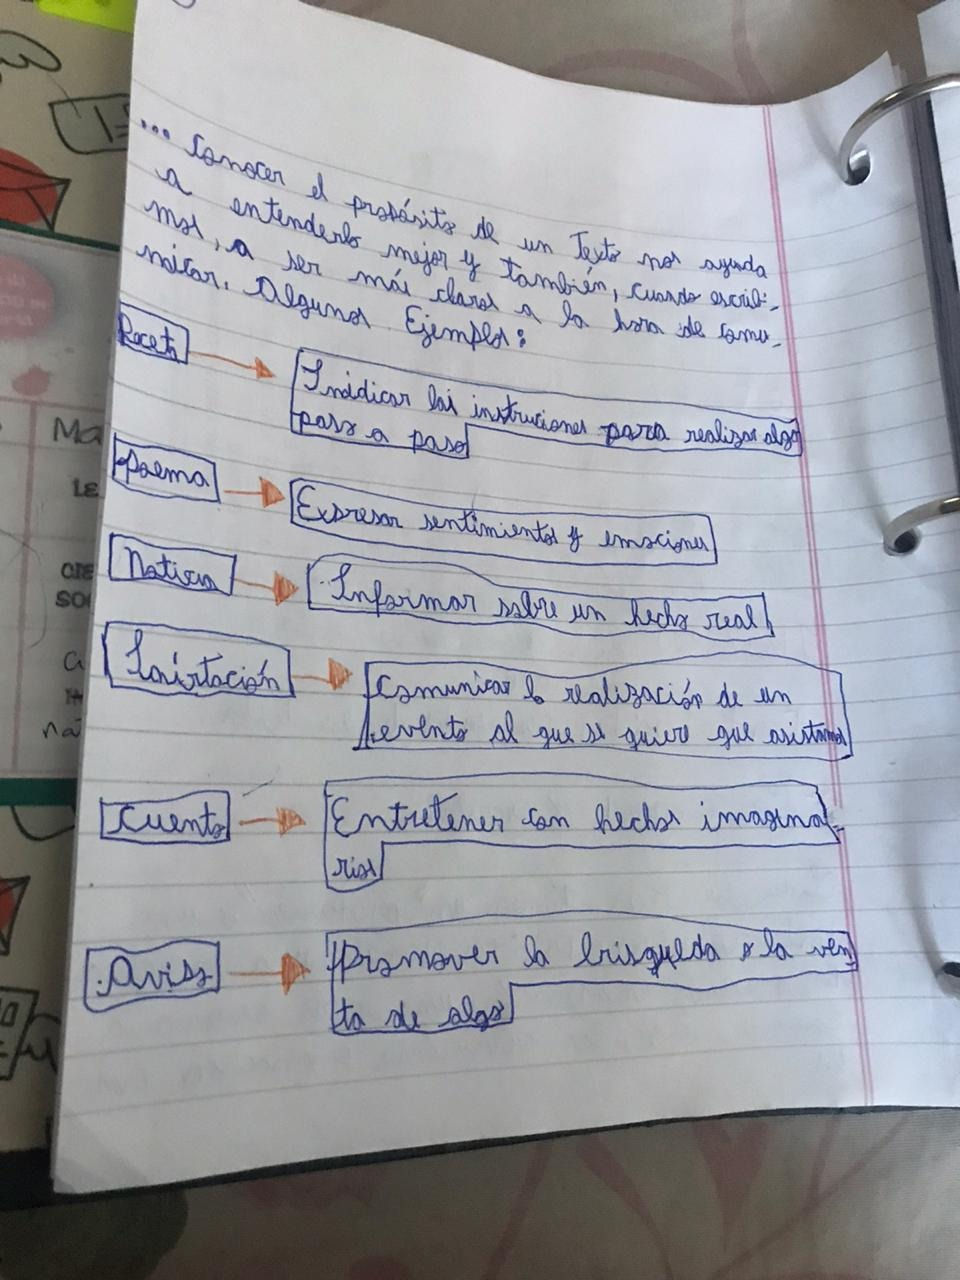 ... Conocer el propósito de un Texto nos ayuda
a entenderlo mejor y también, cuando escribi-
mos, a ser más claros a la hora de comu-
nicar. Algunos Ejemplos:
Receta
Inidicar las instruciones para realizar algo
paso a paso
Poema
Expresar sentimientos y emociones
Noticia
Informar sobre un hecho real
Invitación
Comunicar la realización de un
evento al que se quiere que asistamos
Cuento
Entretener con hechos imagina-
rios
Aviso
Promover la búsqueda o la ven
ta de algo
Ma
LE